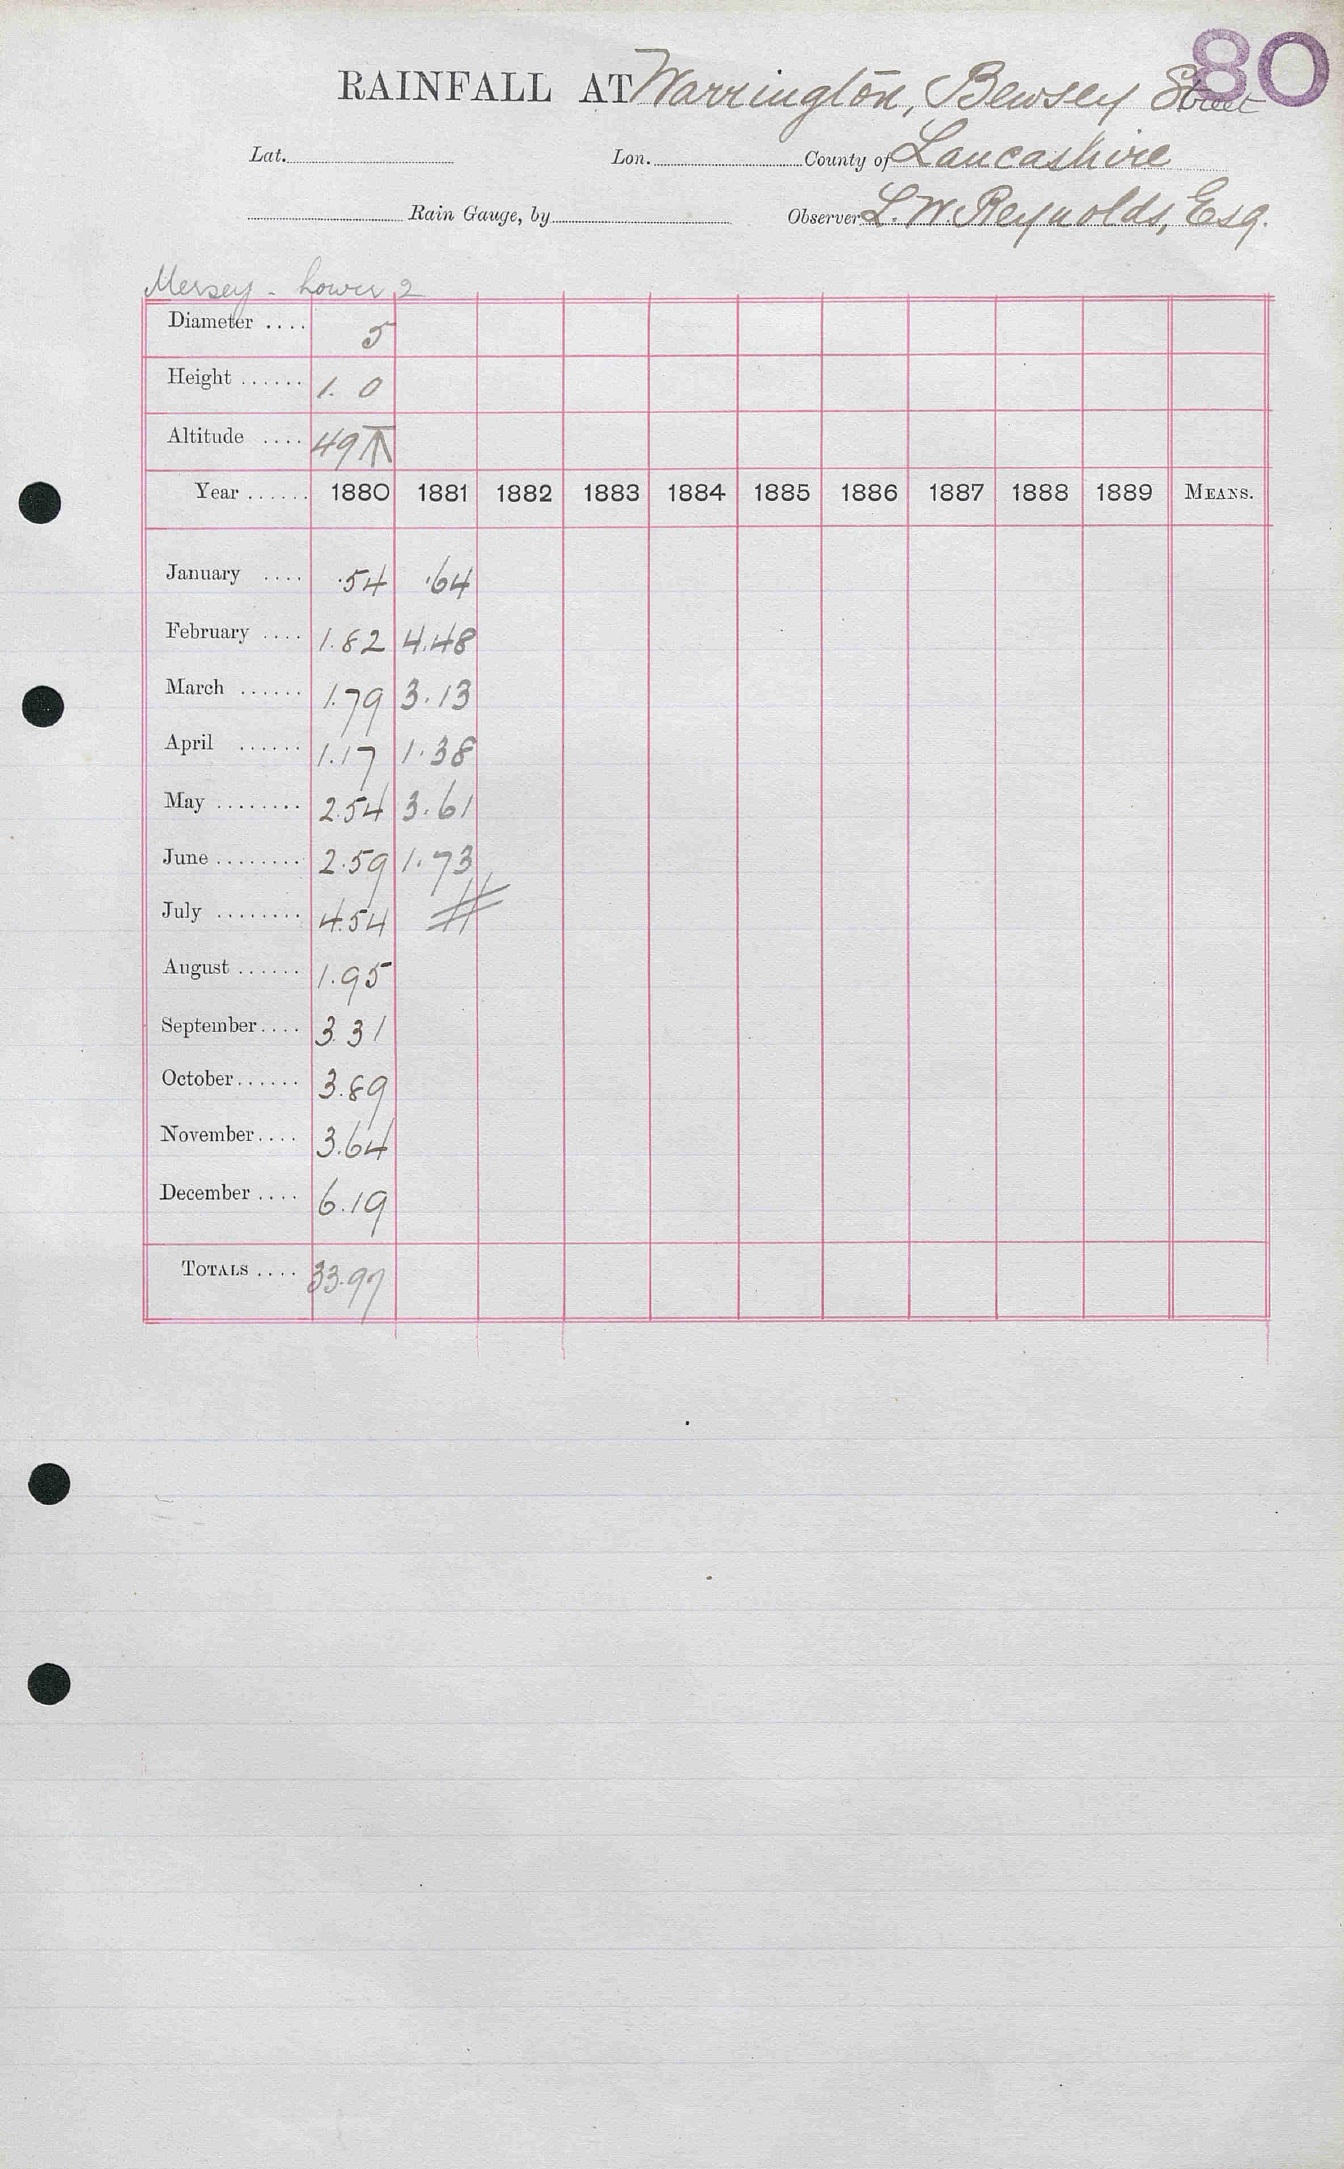 80
RAINFALL AT Warrington, Bewsey Street
Lat. Lon. County of Lancashire
Rain Gauge, by Observer L. W. Reynolds, Esq.
Mersey - Lower 2
Diameter .... 5
Height ...... 1. 0
Altitude .... 49 T
Year ...... 1880 1881 1882 1883 1884 1885 1886 1887 1888 1889 MEANS.
January .... .54 .64
February .... 1.82 4.48
March ...... 1.79 3.13
April ...... 1.17 1.38
May ........ 2.54 3.61
June ........ 2.59 1.73
July ........ 4.54
August ...... 1.95
September .... 3.31
October ...... 3.89
November .... 3.64
December .... 6.19
TOTALS .... 33.97